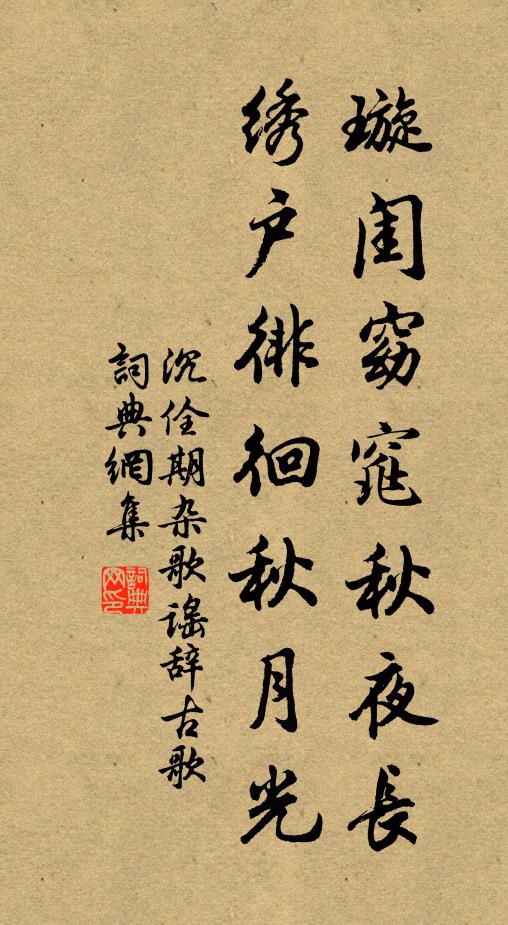 璇闺窈窕秋夜長
绣户徘徊秋月光
沉佺期杂歌谣辞古歌
詞典網集
詞典
网印